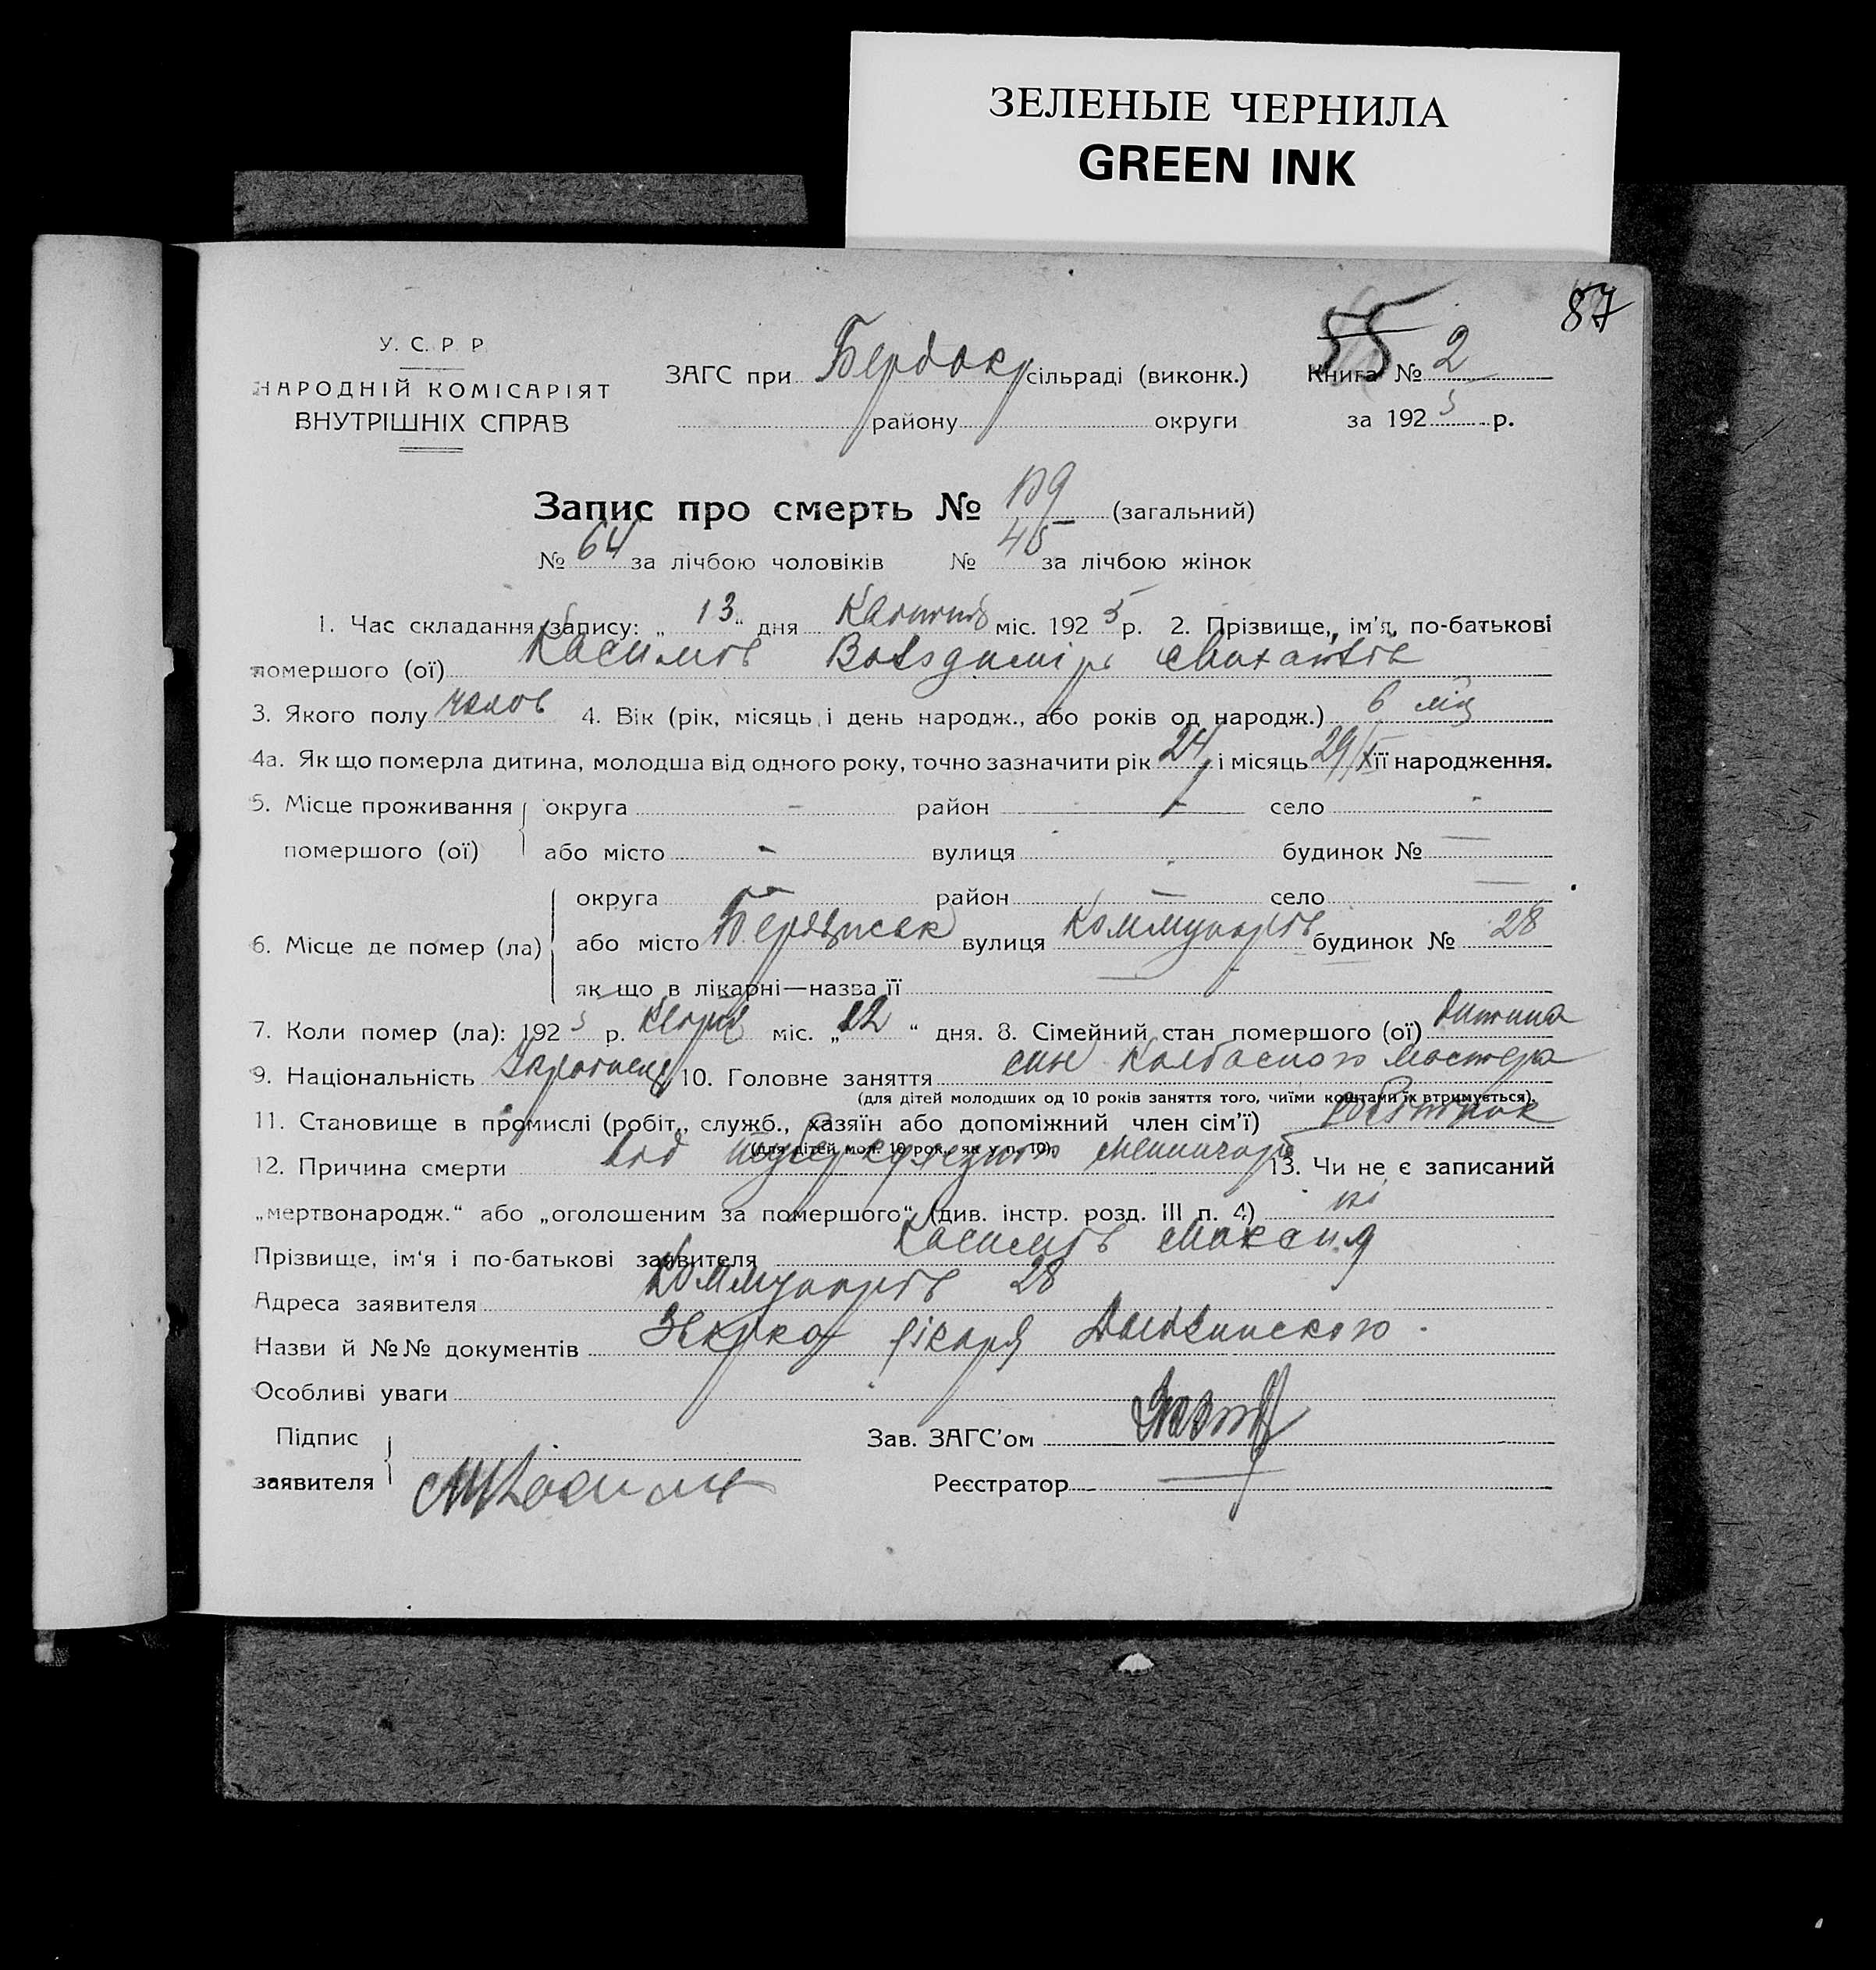 ЗЕЛЕНЫЕ ЧЕРНИЛА
GREEN INK
87
55
У. С. Р. Р.
НАРОДНІЙ КОМІСАРІЯТ
ВНУТРІШНІХ СПРАВ
ЗАГС при Бердокр сільраді (виконк.) Книга № 2
району округи за 1925 р.
Запис про смерть № 109 (загальний)
№ 64 за лічбою чоловіків № 45 за лічбою жінок
1. Час складання запису: „13" дня міс. 1925 р. 2. Прізвище, ім'я, по-батькові
помершого (ої) Касимов
3. Якого полу чолов 4. Вік (рік, місяць і день народж., або років од народж.) 6 міц
4а. Як що померла дитина, молодша від одного року, точно зазначити рік 24 і місяць 29/X її народження.
5. Місце проживання округа - район - село -
помершого (ої) або місто - вулиця - будинок № —
округа — район — село —
6. Місце де помер (ла) або місто вулиця будинок № 28
як що в лікарні—назва її —
7. Коли помер (ла): 1925 р. міс. „12" дня. 8. Сімейний стан помершого (ої) дитина
9. Національність 10. Головне заняття син колбасного мастера
(для дітей молодших од 10 років заняття того, чиїми коштами їх втримується).
11. Становище в промислі (робіт., служб., хазяїн або допоміжний член сім'ї) робітник
(для дітей мол. 10 рок., як у п. 10).
12. Причина смерти від 13. Чи не є записаний
„мертвонародж." або „оголошеним за помершого" (див. інстр. розд. III п. 4) ні
Прізвище, ім'я і по-батькові заявителя Касимов Максид
Адреса заявителя Коммунарів 28
Назви й №№ документів лікаря
Особливі уваги
Підпис Зав. ЗАГС'ом
заявителя Реєстратор